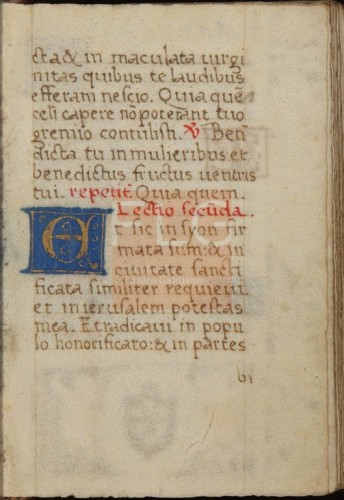 cta & in maculata uirgi
nitas quibus te laudibus̄
efferam nescio. Quia quē
celi capere nō poterant tuo
gremio contulisti. ℣ Ben̄
dicta tu in mulieribus et
benedictus fructus uentris
tui. repetit̄. Quia quem.
Lectio secūda.
Et sic in syon fir
mata sum: & in
ciuitate sancti
ficata similiter requieui
et in ierusalem potestas
mea. Et radicaui in popu
lo honorificato: & in partes
bi